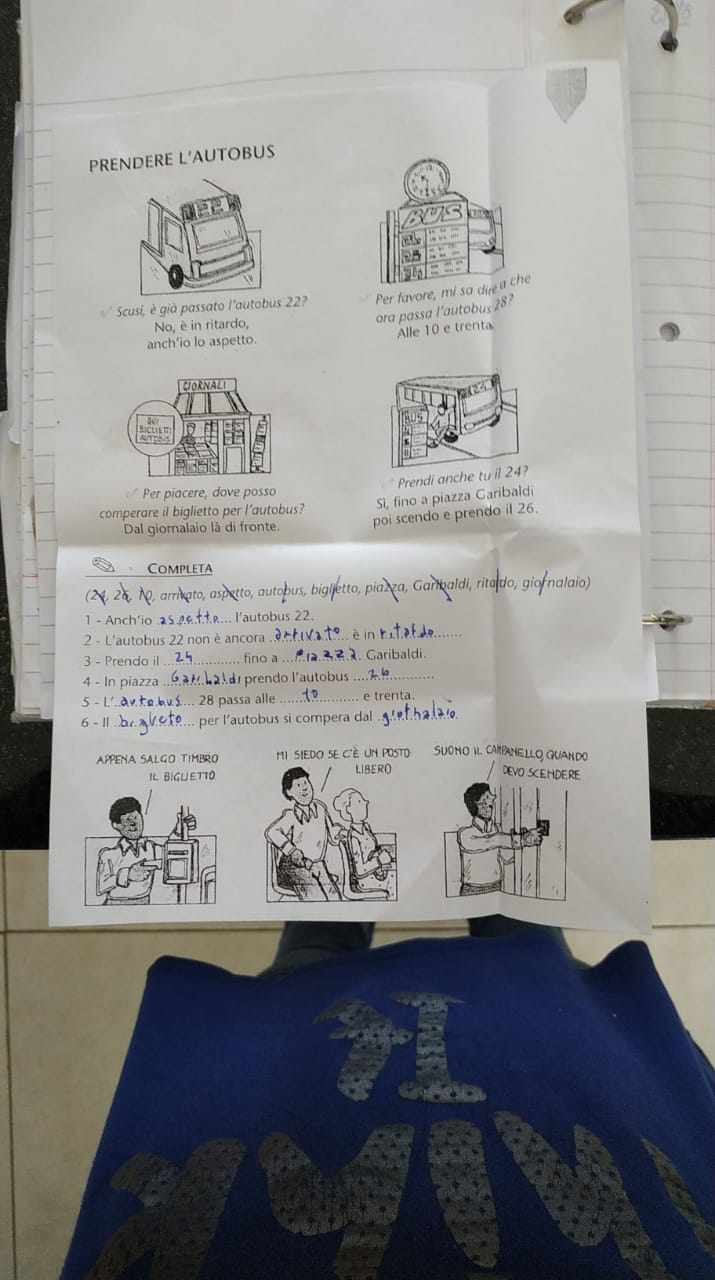 PRENDERE L'AUTOBUS
22
Scusi, è già passato l'autobus 22?
No, è in ritardo,
anch'io lo aspetto.
BUS
Per favore, mi sa dire a che
ora passa l'autobus 28?
Alle 10 e trenta.
GIORNALI
QUI
BIGLIETTI
AUTOBUS
Per piacere, dove posso
comperare il biglietto per l'autobus?
Dal giornalaio là di fronte.
24
BUS
Prendi anche tu il 24?
Sì, fino a piazza Garibaldi
poi scendo e prendo il 26.
COMPLETA
(24, 26, 10, arrivato, aspetto, autobus, biglietto, piazza, Garibaldi, ritardo, giornalaio)
1 - Anch'io aspetto l'autobus 22.
2 - L'autobus 22 non è ancora arrivato è in ritardo
3 - Prendo il 24 fino a piazza Garibaldi.
4 - In piazza Garibaldi prendo l'autobus 26
5 - L'autobus 28 passa alle 10 e trenta.
6 - Il per l'autobus si compera dal
APPENA SALGO TIMBRO
IL BIGLIETTO
MI SIEDO SE C'È UN POSTO
LIBERO
SUONO IL CAMPANELLO, QUANDO
DEVO SCENDERE